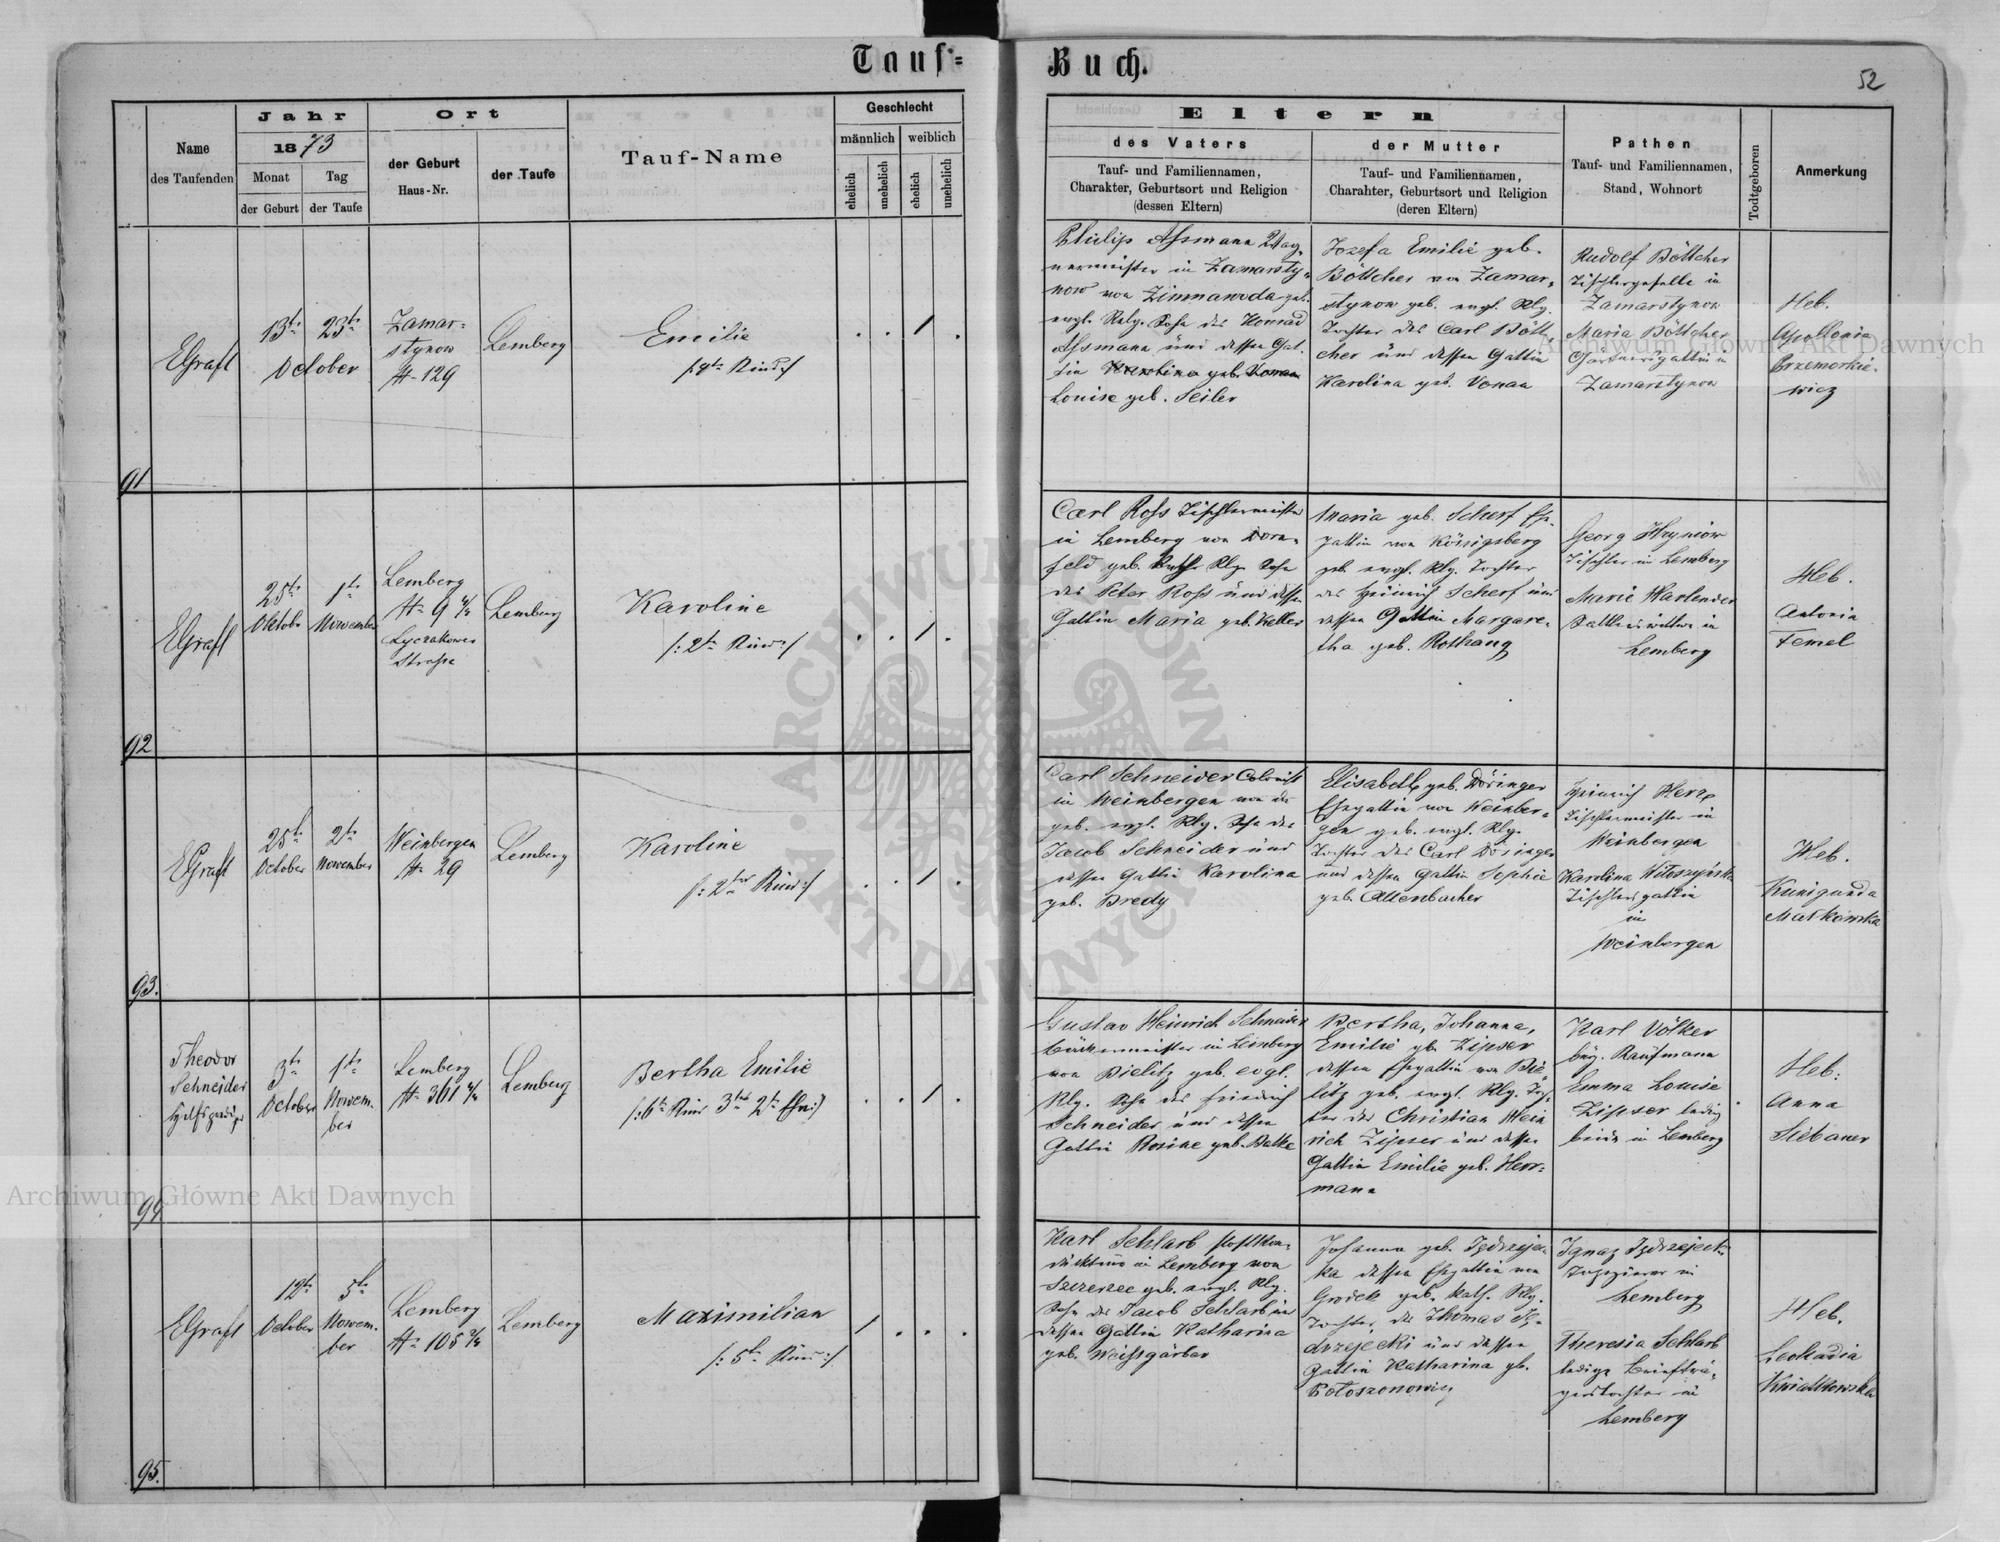 Tauf=
Buch.
52
Name
des Taufenden
Jahr
1873
Monat
Tag
der Geburt
der Taufe
Ort
der Geburt
Haus-Nr.
der Taufe
Tauf-Name
Geschlecht
männlich
weiblich
ehelich
unehelich
ehelich
unehelich
Eltern
des Vaters
Tauf- und Familiennamen,
Charakter, Geburtsort und Religion
(dessen Eltern)
der Mutter
Tauf- und Familiennamen,
Charahter, Geburtsort und Religion
(deren Eltern)
Pathen
Tauf- und Familiennamen,
Stand, Wohnort
Todtgeboren
Anmerkung
91
EGraft
13te
October
23te
Zamar=
stynow
No 129
Lemberg
Emilie
/:4te Kind:/
Philip Assmann Wag=
nermeister in Zamarsty=
now von Zimnawoda geb.
evgl. Relg. Sohn des Konrad
Assmann und dessen Gat-
tin Karolina geb. Vonau
Louise geb. Seiler
Jozefa Emilie geb.
Böttcher von Zamar=
stynow geb. evgl. Rlg.
Tochter des Carl Bött
cher und dessen Gattin
Karolina geb. Vonau
Rudolf Böttcher
Tischlergeselle in
Zamarstynow
Maria Böttcher
Gärtnersgattin in
Zamarstynow
Heb.
Apollonia
Przemorkie-
wicz
92
EGraft
25te
Oktobr
1te
November
Lemberg
No 9 4/4
Lyczakower
Strasse
Lemberg
Karoline
/:2te Kind:/
Carl Ross Tischlermeister
in Lemberg von Dorn=
feld geb. Rlg. Sohn
des Peter Ross und dessen
Gattin Maria geb. Keller
Maria geb. Scherf Ehe-
gattin von Königsberg
geb. evgl. Rlg. Tochter
des Heinrich Scherf und
dessen Gattin Margare-
tha geb. Rothaug
Georg Hryniow
Tischler in Lemberg
Marie Harlender
Sattlerswittwe in
Lemberg
Heb.
Antonia
Femel
93.
EGraft
25te
October
2te
November
Weinbergen
No 29
Lemberg
Karoline
/:2tes Kind:/
Carl Schneider Colonist
in Weinbergen von da
geb. evgl. Rlg. Sohn des
Jacob Schneider und
dessen Gattin Karolina
geb. Bredy
Elisabeth geb. Döringer
Ehegattin von Weinber=
gen geb. evgl. Rlg.
Tochter des Carl Döringer
und dessen Gattin Sophie
geb. Altenbacher
Heinrich Herz
Tischlermeister in
Weinbergen
Karolina
Tischlersgattin
in
Weinbergen
Heb.
Kunigunda
Malkowska
94
Theodor
Schneider
Hilfsprediger
3te
October
1te
Novem-
ber
Lemberg
No 361 4/4
Lemberg
Bertha Emilie
/:6te Kind 3tes 2te Ehe:/
Gustav Heinrich Schneider
Bäckermeister in Lemberg
von Bielitz geb. evgl.
Rlg. Sohn des Friedrich
Schneider und dessen
Gattin Rosine geb. Batke
Bertha, Johanna,
Emilie gb. Zipser
dessen Ehegattin von Bie-
litz geb. evgl. Rlg. Toch-
ter des Christian Hein
rich Zipser und dessen
Gattin Emilie geb. Herr=
mann
Karl Völker
bürg. Kaufmann
Emma Louise
Zipser ledig
beide in Lemberg
Heb:
Anna
Siebauer
95.
EGraft
12te
October
5te
Novem-
ber
Lemberg
No 105 2/4
Lemberg
Maximilian
/:5te Kind:/
Karl Schlarb Postkon=
dukteur in Lemberg von
Szczerzec geb. evgl. Rlg.
Sohn des Jacob Schlarb und
dessen Gattin Katharina
geb. Weissgärber
Johanna geb. Jędrzejec-
ka dessen Ehegattin von
Grodek geb. kath. Rlg.
Tochter des Thomas Ję-
drzejecki und dessen
Gattin Katharina gb.
Ignaz Jędrzejecki
in
Lemberg
Theresia Schlarb
ledige Briefträ-
gerstochter in
Lemberg
Heb.
Leokadia
Kwiatkowska
Archiwum Główne Akt Dawnych
Archiwum Główne Akt Dawnych
ARCHIWUM GŁÓWNE AKT DAWNYCH